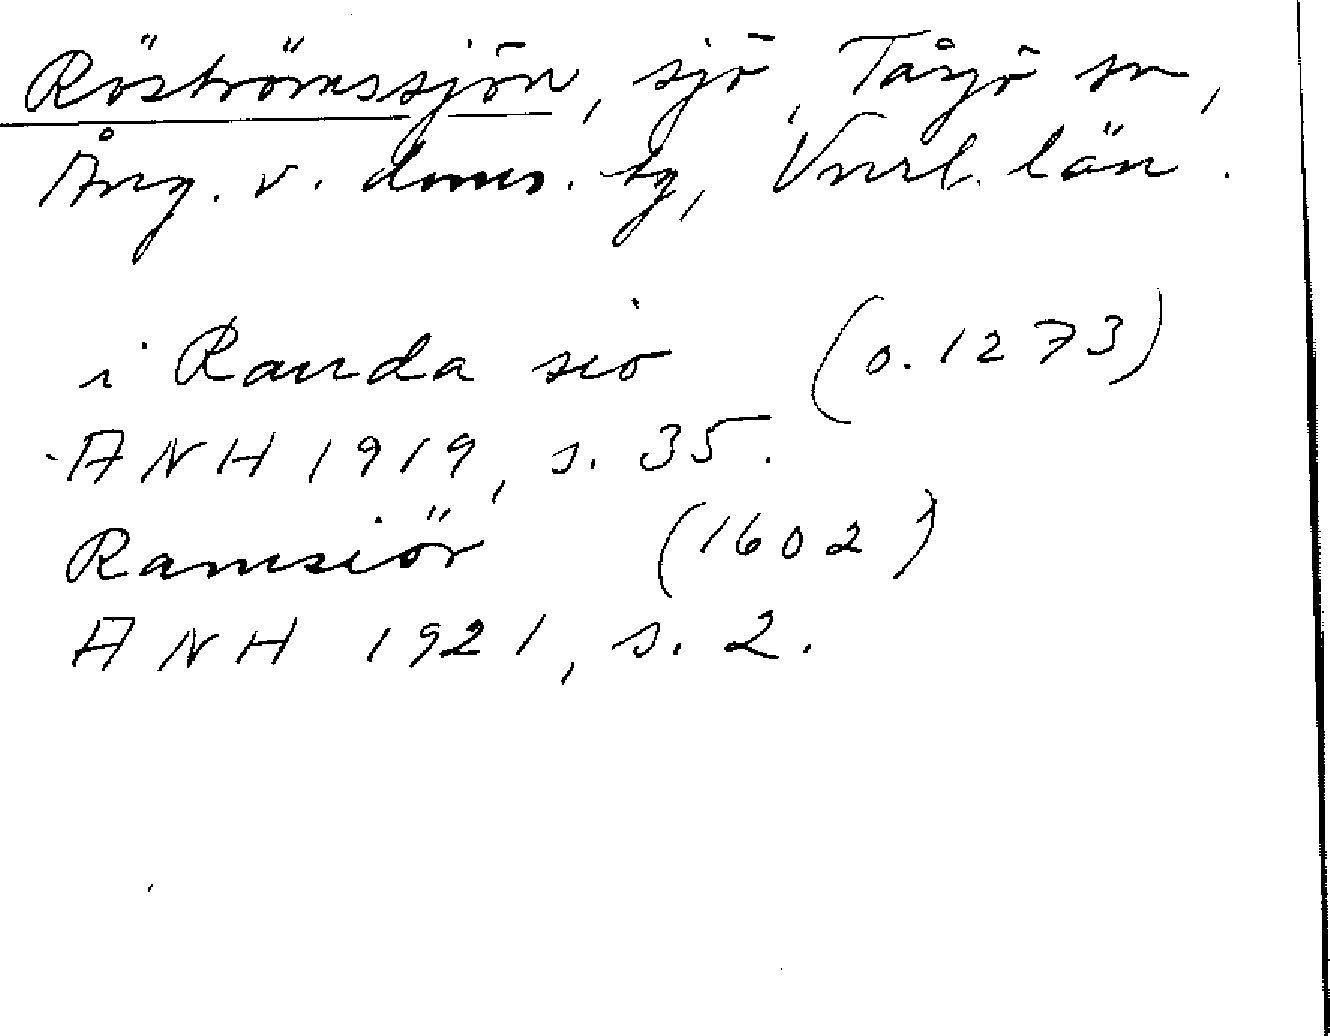 Röströmssjön, sjö, Tåsjö sn,
Ång. v. doms. tg, Vnrl. län.
i Randa sio (o. 1273)
ANH 1919, s. 35.
Ramsiör (1602)
ANH 1921, s. 2.